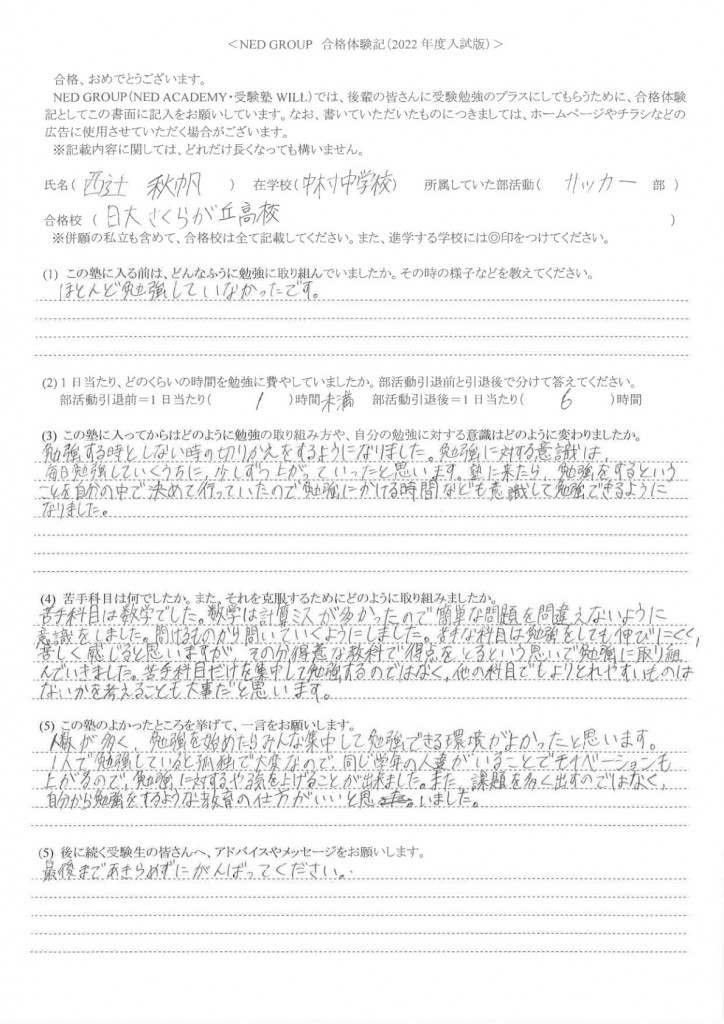 ＜NED GROUP 合格体験記（2022年度入試版）＞
合格、おめでとうございます。
NED GROUP（NED ACADEMY・受験塾WILL）では、後輩の皆さんに受験勉強のプラスにしてもらうために、合格体験
記としてこの書面に記入をお願いしています。なお、書いていただいたものにつきましては、ホームページやチラシなどの
広告に使用させていただく場合がございます。
※記載内容に関しては、どれだけ長くなっても構いません。
氏名（ 西辻 秋帆 ） 在学校（中村中学校） 所属していた部活動（ サッカー 部 ）
合格校（ 日大さくらが丘高校 ）
※併願の私立も含めて、合格校は全て記載してください。また、進学する学校には◎印をつけてください。
(1) この塾に入る前は、どんなふうに勉強に取り組んでいましたか。その時の様子などを教えてください。
ほとんど勉強していなかったです。
(2) 1日当たり、どのくらいの時間を勉強に費やしていましたか。部活動引退前と引退後で分けて答えてください。
部活動引退前＝1日当たり（ 1 ）時間未満 部活動引退後＝1日当たり（ 6 ）時間
(3) この塾に入ってからはどのように勉強の取り組み方や、自分の勉強に対する意識はどのように変わりましたか。
勉強する時としない時の切りかえをするようになりました。勉強に対する意識は、
毎日勉強していくうちに、少しずつ上がっていったと思います。塾に来たら、勉強をするという
ことを自分の中で決めて行っていたので勉強にかける時間なども意識して勉強できるように
なりました。
(4) 苦手科目は何でしたか。また、それを克服するためにどのように取り組みましたか。
苦手科目は数学でした。数学は計算ミスが多かったので簡単な問題を間違えないように
意識をしました。聞けるものがり聞いていくようにしました。苦手な科目は勉強をしても伸びにくく、
苦しく感じると思いますが、その分得意な教科で得点をとるという思いで勉強に取り組
んでいきました。苦手科目だけを集中して勉強するのではなく、他の科目でもよりとれやすいものは
ないかを考えることも大事だと思います。
(5) この塾のよかったところを挙げて、一言をお願いします。
人数が多く、勉強を始めたらみんな集中して勉強できる環境がよかったと思います。
1人で勉強していると孤独で大変なので、同じ学年の人達がいることでモチベーションも
上がるので、勉強に対するやる気を上げることが出来ました。また、課題を多く出すのではなく、
自分から勉強をするような教育の仕方がいいと思いました。
(5) 後に続く受験生の皆さんへ、アドバイスやメッセージをお願いします。
最後まであきらめずにがんばってください。